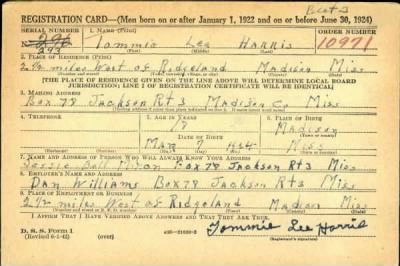 Bost-3
REGISTRATION CARD—(Men born on or after January 1, 1922 and on or before June 30, 1924)
SERIAL NUMBER 1. NAME (Print) ORDER NUMBER
N 296 Tommie Lee Harris 10971
293
(First) (Middle) (Last)
2. PLACE OF RESIDENCE (Print)
2 1/2 miles West of Ridgeland Madison Miss
(Number and street) (Town, township, village, or city) (County) (State)
[THE PLACE OF RESIDENCE GIVEN ON THE LINE ABOVE WILL DETERMINE LOCAL BOARD
JURISDICTION; LINE 2 OF REGISTRATION CERTIFICATE WILL BE IDENTICAL]
3. MAILING ADDRESS
Box 78 Jackson Rt 3 Madison Co Miss
4. TELEPHONE 5. AGE IN YEARS 6. PLACE OF BIRTH
18 Madison
DATE OF BIRTH
Mar 7 1924 Miss
7. NAME AND ADDRESS OF PERSON WHO WILL ALWAYS KNOW YOUR ADDRESS
Box 78 Jackson Rt 3 Miss
8. EMPLOYER'S NAME AND ADDRESS
Dan Williams Box 78 Jackson Rt 3 Miss
9. PLACE OF EMPLOYMENT OR BUSINESS
2 1/2 miles West of Ridgeland Madison Miss
I AFFIRM THAT I HAVE VERIFIED ABOVE ANSWERS AND THAT THEY ARE TRUE.
D. S. S. Form 1
(Revised 6-1-42) Tommie Lee Harris
(Registrant's signature)